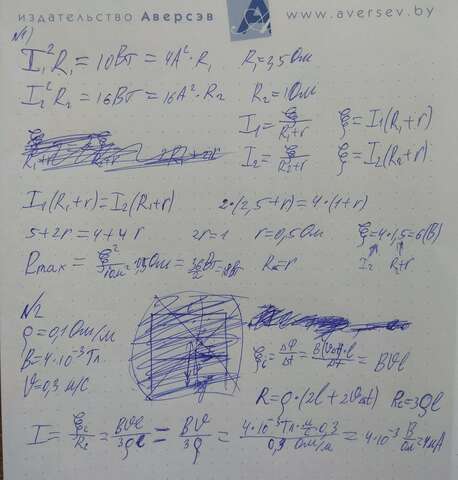 издательство Аверсэв www.aversev.by
№1)
I₁²R₁ = 10Вт = 4А²·R₁ R₁=3,5Ом
I₂²R₂ = 16Вт = 16А²·R₂ R₂=1Ом
I₁ = ξ/(R₁+r) ξ=I₁(R₁+r)
I₂ = ξ/(R₂+r) ξ=I₂(R₂+r)
I₁(R₁+r)=I₂(R₂+r) 2·(2,5+r)=4·(1+r)
5+2r=4+4r 2r=1 r=0,5Ом ξ=4·1,5=6(В)
I₂ R₂+r
Pmax = R=r
№2
ρ=0,1Ом/м
B=4·10⁻³Тл
V=0,3 м/с
ξi = ΔФ/Δt = B(VΔt)·l/Δt = BVl
R=ρ·(2l+2VΔt) Rc=3ρl
I = ξi/Rc = BVl/3ρl = BV/3ρ = = 4·10⁻³ = 4мА